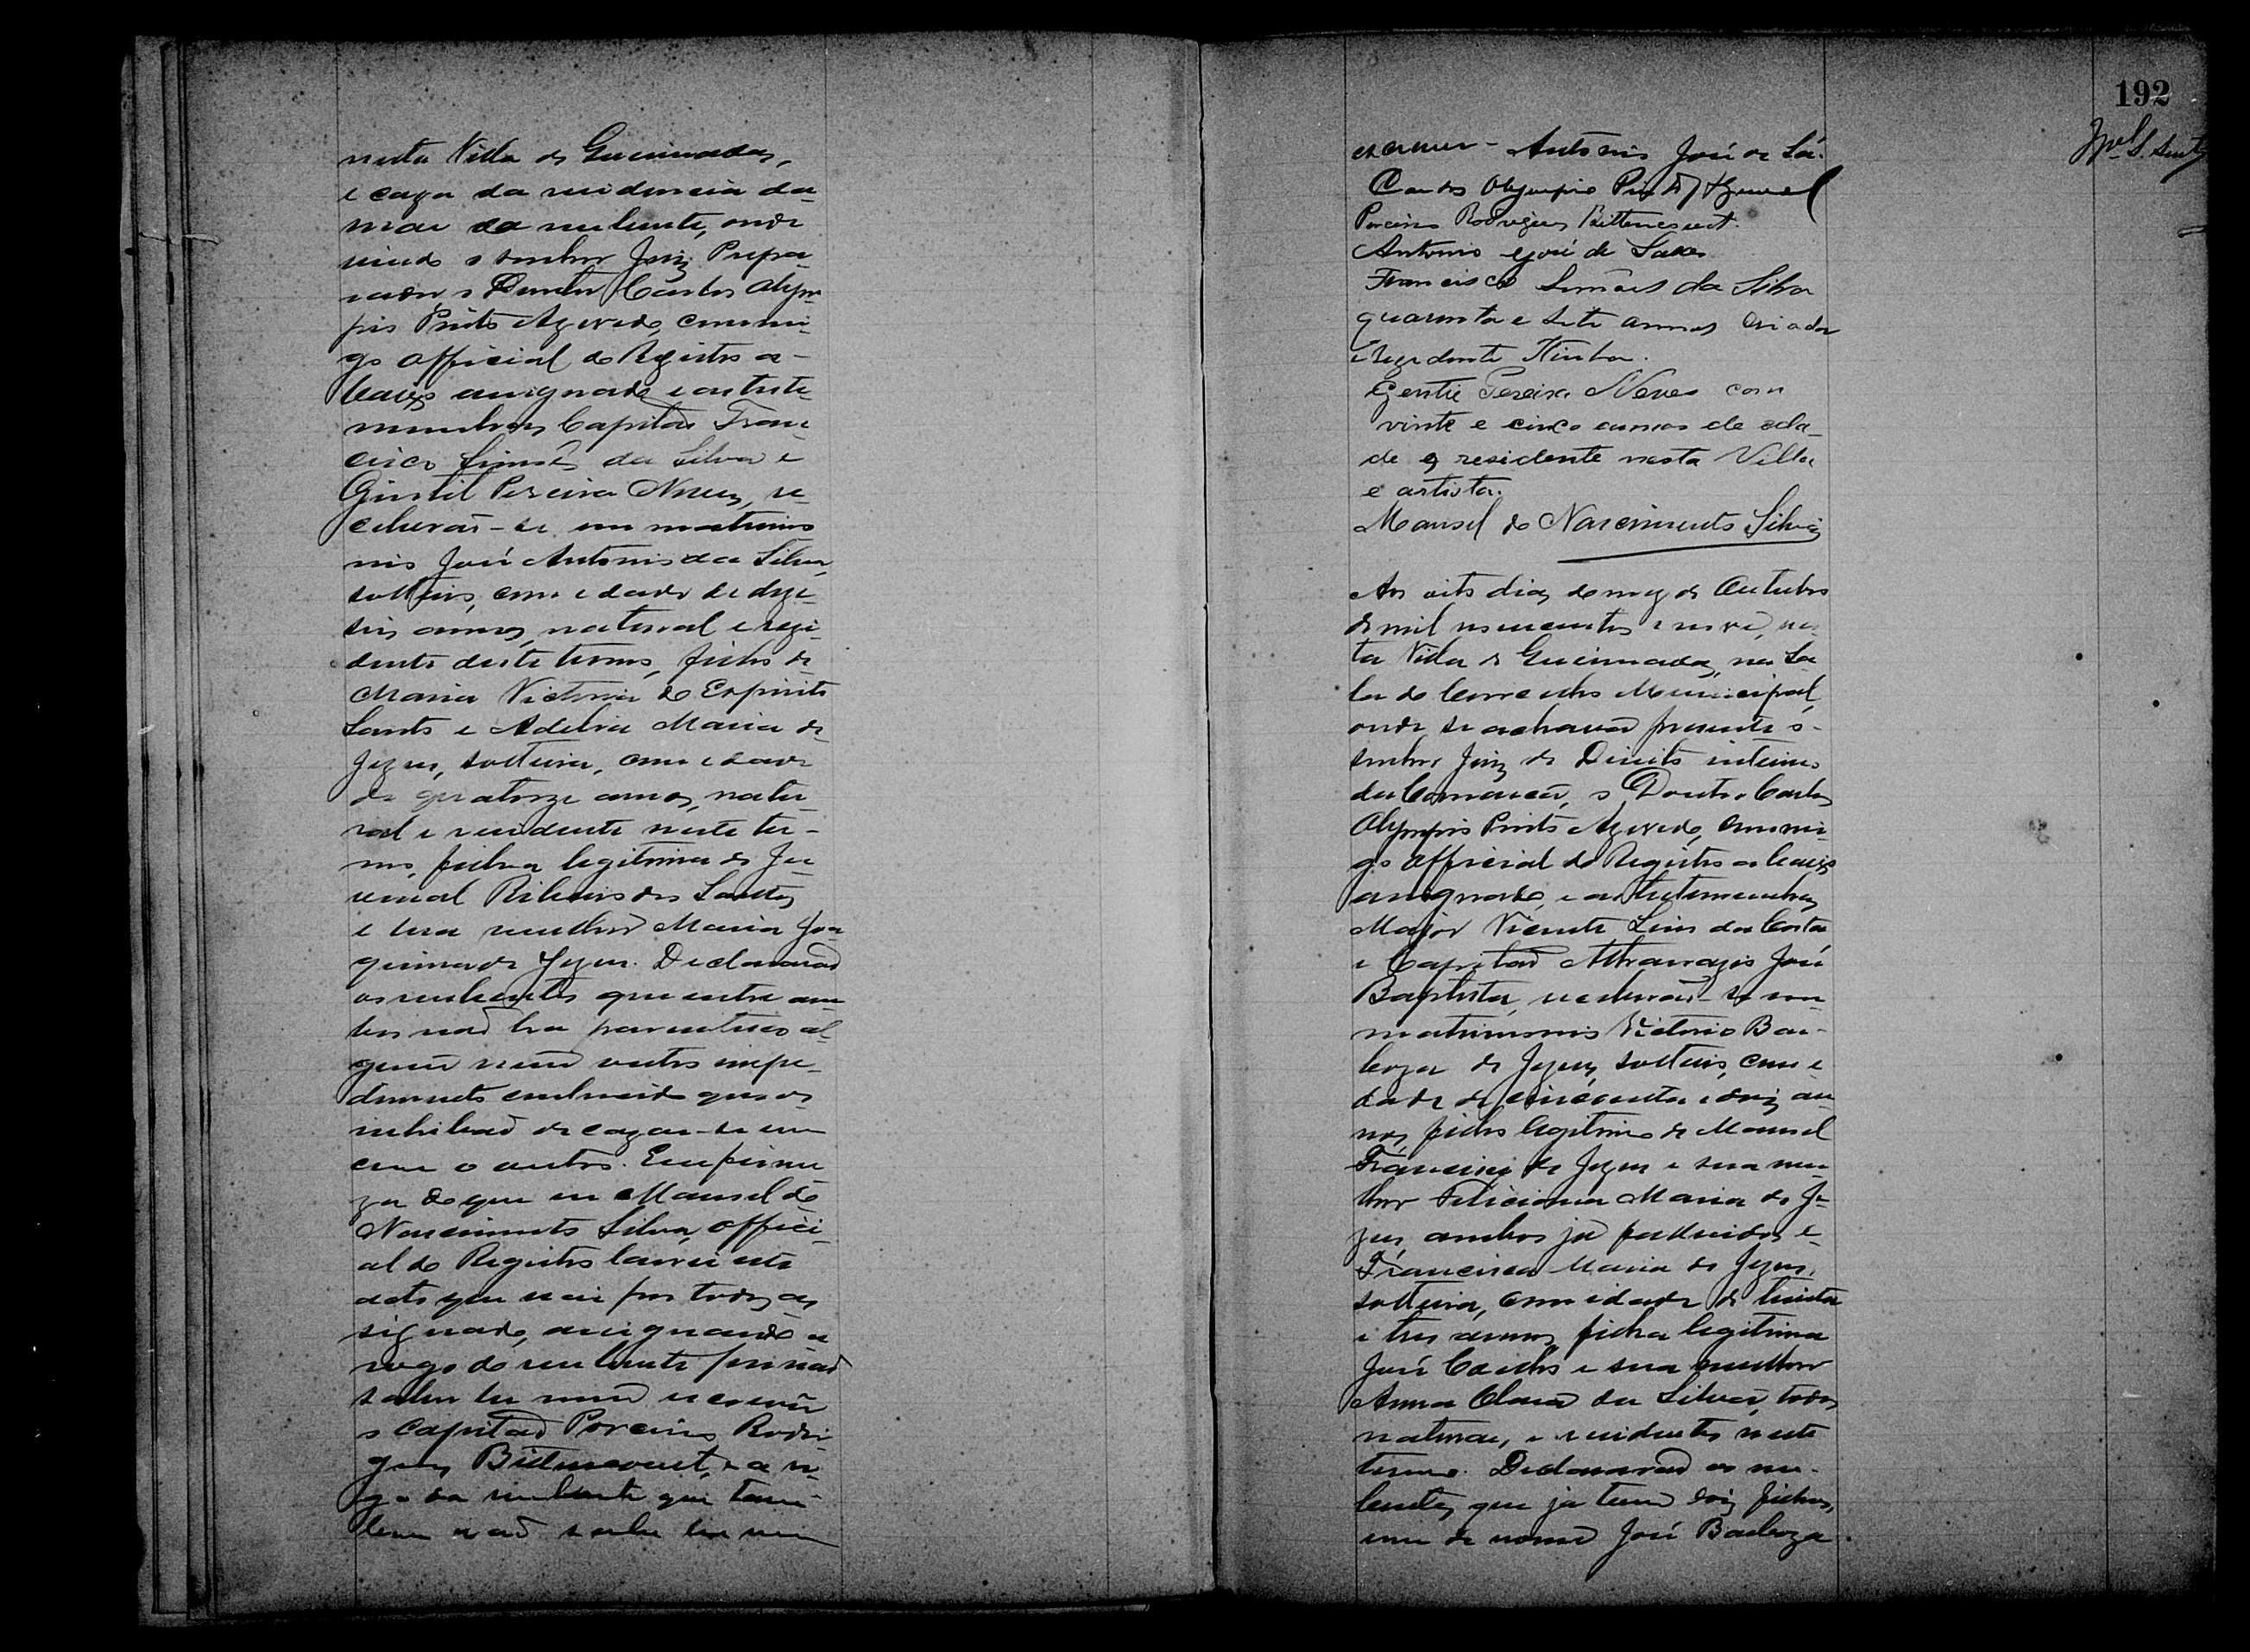 nesta Villa de Queimadas,
e caza da residencia da
mãe da nubente, onde
vindo o senhor Juiz Prepa-
rador o Doutor Carlos Olym-
pio Pinto Azevedo, commi-
go official do Registro a-
baixo assignado e as teste-
munhas Capitão Fran-
cisco Simões da Silva e
Gentil Pereira Neves, re-
ceberão-se em matrimo-
nio José Antonio da Silva,
solteiro, com idade de deze-
seis annos, natural e rezi-
dente deste termo, filho de
Maria Victoria do Espirito
Santo e Adelia Maria de
Jezus, solteira, com idade
de quatorze annos, natu-
ral e residente neste ter-
mo, filha legitima de Ju-
venal Ribeiro dos Santos
e sua mulher Maria Joa-
quina de Jezus. Declararão
os nubentes que entre am-
bos não ha parentesco al-
gum nem outro impe-
dimento conhecido que os
inhibão de cazar-se um
com o outro. Em firme-
za do que eu Manoel do
Nascimento Silva, offici-
al do Registro lavrei este
acto que vai por todos as-
signado, assignando a
rogo do nubente por não
saber ler nem escrever
o Capitão Porcino Rodri-
gues Bittencourt, e a ro-
go da nubente que tam-
bem não sabe ler nem
192
escrever - Antonio José de Sá.
Carlos Olympio Pinto Azevedo
Porcino Rodrigues Bittencourt.
Antonio José de Sales
Francisco Simões da Silva
quarenta e sete annos criador
e rezidente
Gentil Pereira Neves com
vinte e cinco annos de ida-
de e residente nesta Villa
e artista.
Manoel do Nascimento Silva
Aos oito dias do mez de Outubro
de mil novecentos e nove, nes-
ta Villa de Queimadas, na Sa-
la do Concelho Municipal,
onde se achavão presente o
senhor Juiz de Direito interino
da Comarca, o Doutor Carlos
Olympio Pinto Azevedo, commi-
go official do Registro abaixo
assignado, e as testemunhas
Major Vicente Lins da Costa
e Capitão Athanazio José
Baptista, receberão-se em
matrimonio Victorio Bar-
boza de Jezus, solteiro, com i-
dade de cincoenta e dois an-
nos, filho legitimo de Manoel
Francisco de Jezus e sua mu-
lher Feliciana Maria de Je-
zus, ambos já fallecidos e
Francisca Maria de Jezus,
solteira, com idade de trinta
e tres annos, filha legitima
José Coelho e sua mulher
Anna Clara da Silva, todos
naturaes, e residentes neste
termo. Declararão os nu-
bentes, que já tem dois filhos,
um de nome José Barboza